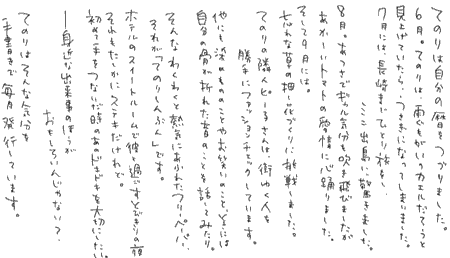 てのりは自分の暦をつづりました。
6月。てのりは、雨ふるがいいカエルだてろうと
見上げていたら、つきまになってしまいました。
7月には、長崎までひとり旅をし、
ここ出島に驚きました。
8月。あつさでギャル気分も吹き飛びましたが
あかーいトマトの愛情に心踊りました。
そして9月には。
忘れな草の畑で花づくりに挑戦しました。
てのりの隣人ピー子さんは、街ゆく人を
勝手にファッションチェックしてます。
他にも、涙のもののことやお笑いのこと、ときには
自分の骨が折れた音のことも話してみたり。
そんなわくわくと熱気にあふれたフリーペーパー、
それが「てのりしんぶん」です。
ホテルのスイートルームで彼と過ごすとびきりの夜
それもたしかにステキだけれど。
初めて手をつないだ時のあのドキドキを大切にしたい。
―身近な出来事のほうが
おもしろいんじゃない?
てのりはそんな気分を
手書きで毎月発行しています。